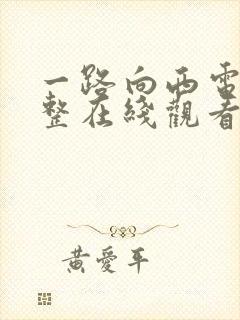 一路向西電
整在綫觀看
黃愛平